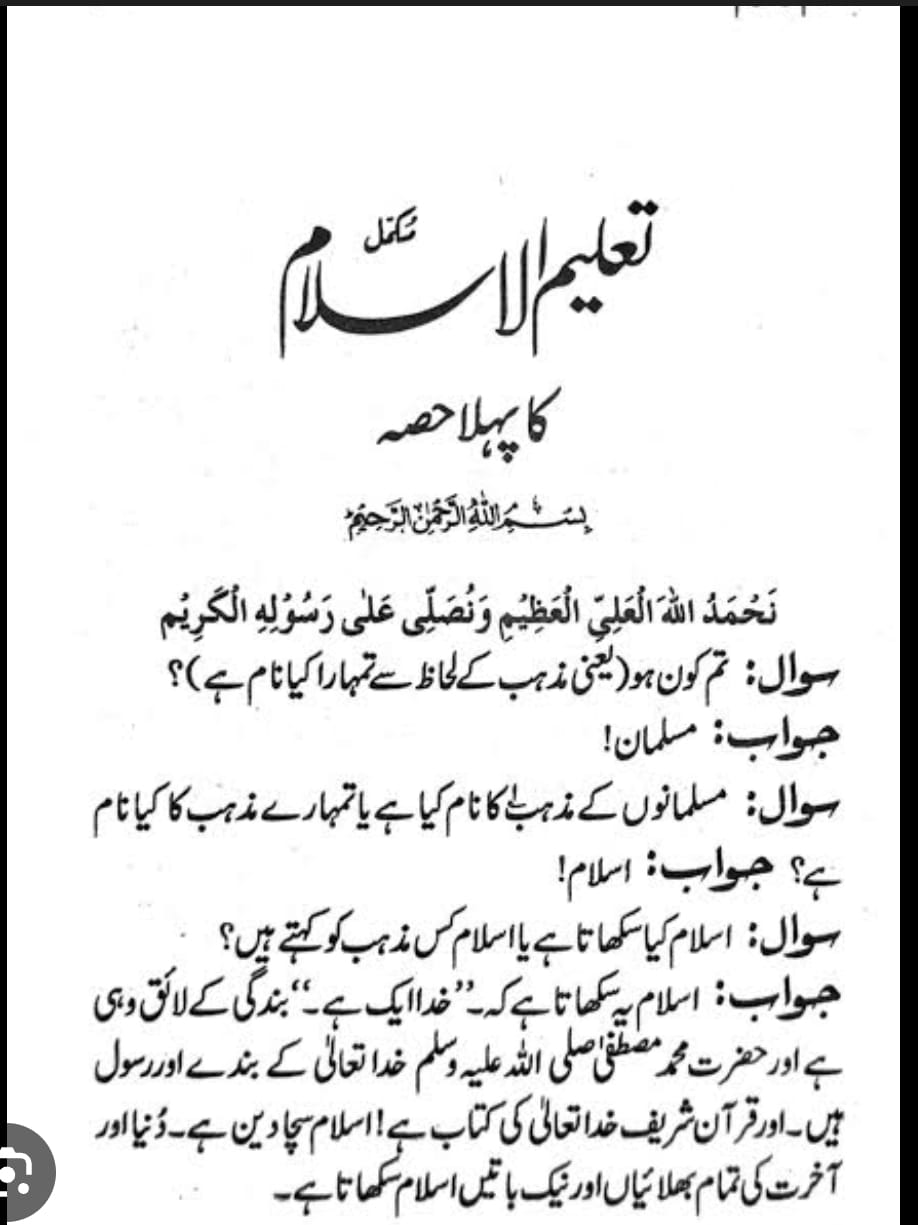 تعلیم الاسلام مکمّل
کا پہلا حصہ
بِسْمِ اللهِ الرَّحْمٰنِ الرَّحِيْمِ
نَحْمَدُ اللهَ الْعَلِيِّ الْعَظِيْمِ وَنُصَلِّى عَلٰى رَسُوْلِهِ الْكَرِيْم
سوال: تم کون ہو (یعنی مذہب کے لحاظ سے تمہارا کیا نام ہے)؟
جواب: مسلمان!
سوال: مسلمانوں کے مذہب کا نام کیا ہے یا تمہارے مذہب کا کیا نام
ہے؟ جواب: اسلام!
سوال: اسلام کیا سکھاتا ہے یا اسلام کس مذہب کو کہتے ہیں؟
جواب: اسلام یہ سکھاتا ہے کہ۔ ’’خدا ایک ہے۔‘‘ بندگی کے لائق وہی
ہے اور حضرت محمد مصطفیٰ صلی اللہ علیہ وسلم خدا تعالیٰ کے بندے اور رسول
ہیں۔ اور قرآن شریف خدا تعالیٰ کی کتاب ہے! اسلام سچا دین ہے۔ دُنیا اور
آخرت کی تمام بھلائیاں اور نیک باتیں اسلام سکھاتا ہے۔